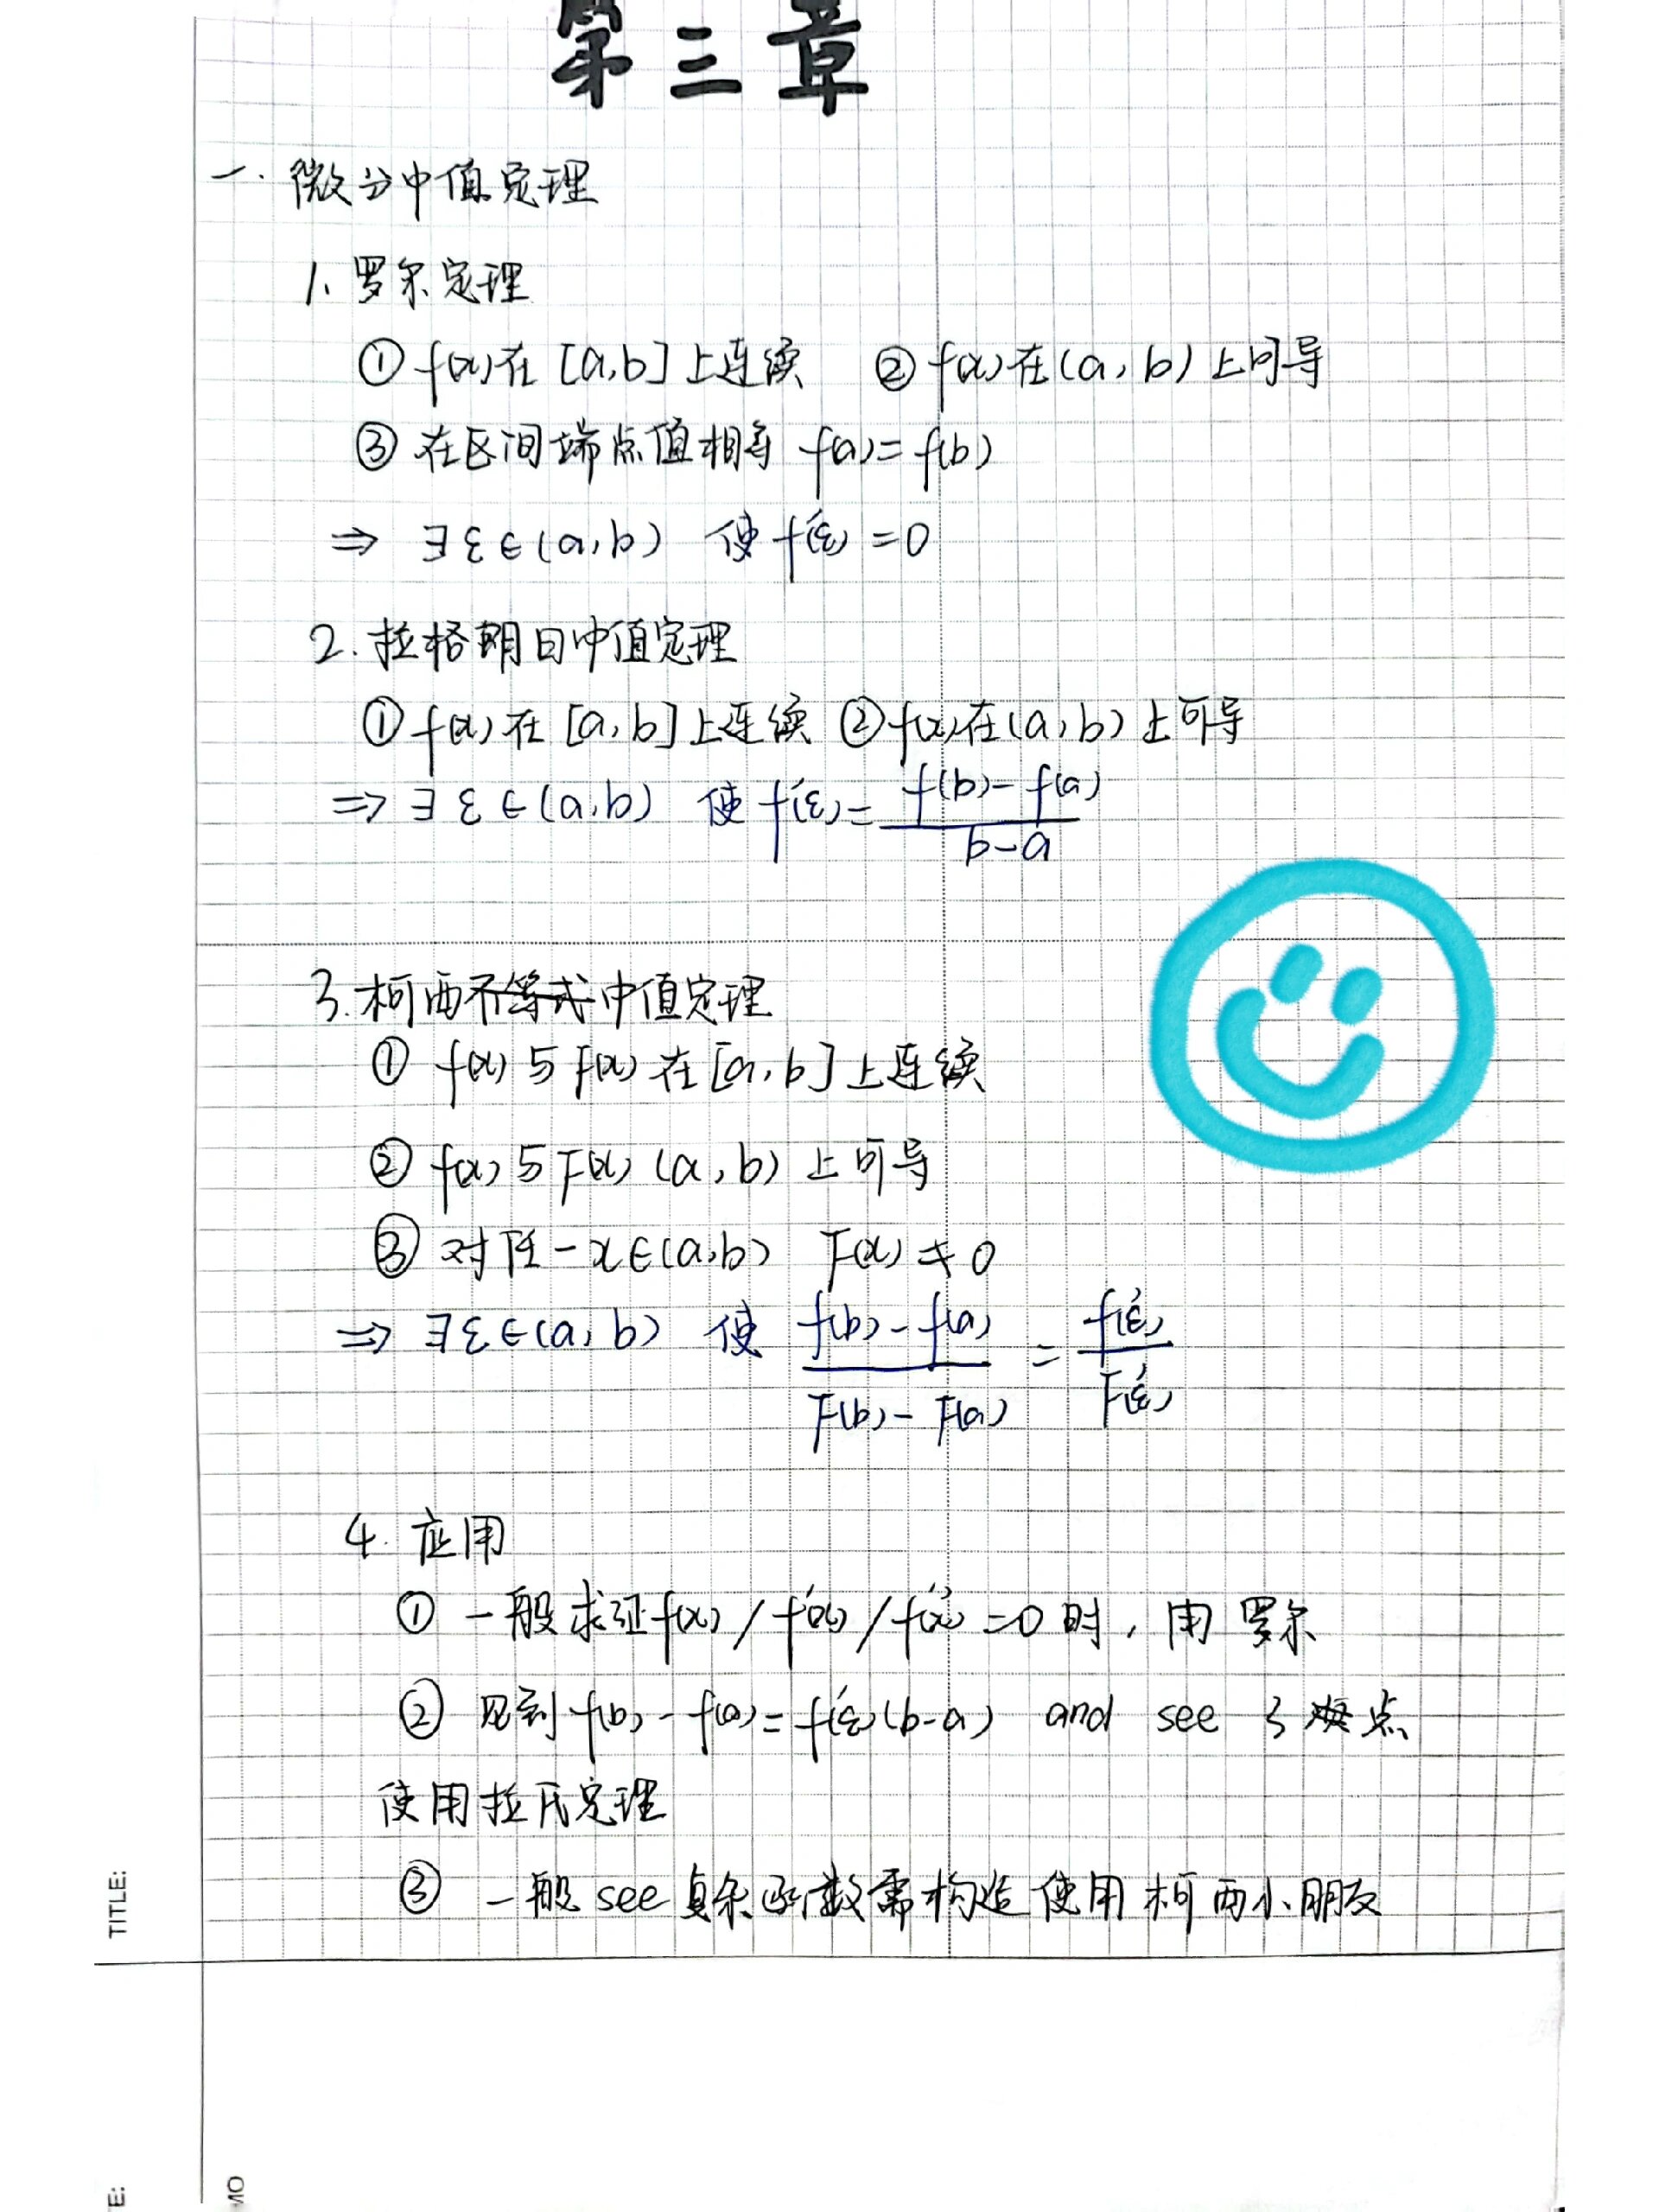 第三章
一. 微分中值定理
1. 罗尔定理
① f(x)在[a,b]上连续 ② f(x)在(a,b)上可导
③ 在区间端点值相等 f(a)=f(b)
⇒ ∃ξ∈(a,b) 使f'(ξ)=0
2. 拉格朗日中值定理
① f(x)在[a,b]上连续 ② f(x)在(a,b)上可导
⇒ ∃ξ∈(a,b) 使f'(ξ)= f(b)-f(a) / b-a
3. 柯西不等式中值定理
① f(x)与F(x)在[a,b]上连续
② f(x)与F(x)(a,b)上可导
③ 对任一x∈(a,b) F(x)≠0
⇒ ∃ξ∈(a,b) 使 f(b)-f(a) / F(b)-F(a) = f'(ξ) / F'(ξ)
4. 应用
① 一般求证f(x)/f'(x)/f''(x)=0时,用罗尔
② 见到f(b)-f(a)=f'(ξ)(b-a) and see 3 点
使用拉氏定理
③ 一般see复杂函数需构造使用柯西小朋友
TITLE:
E:
MO